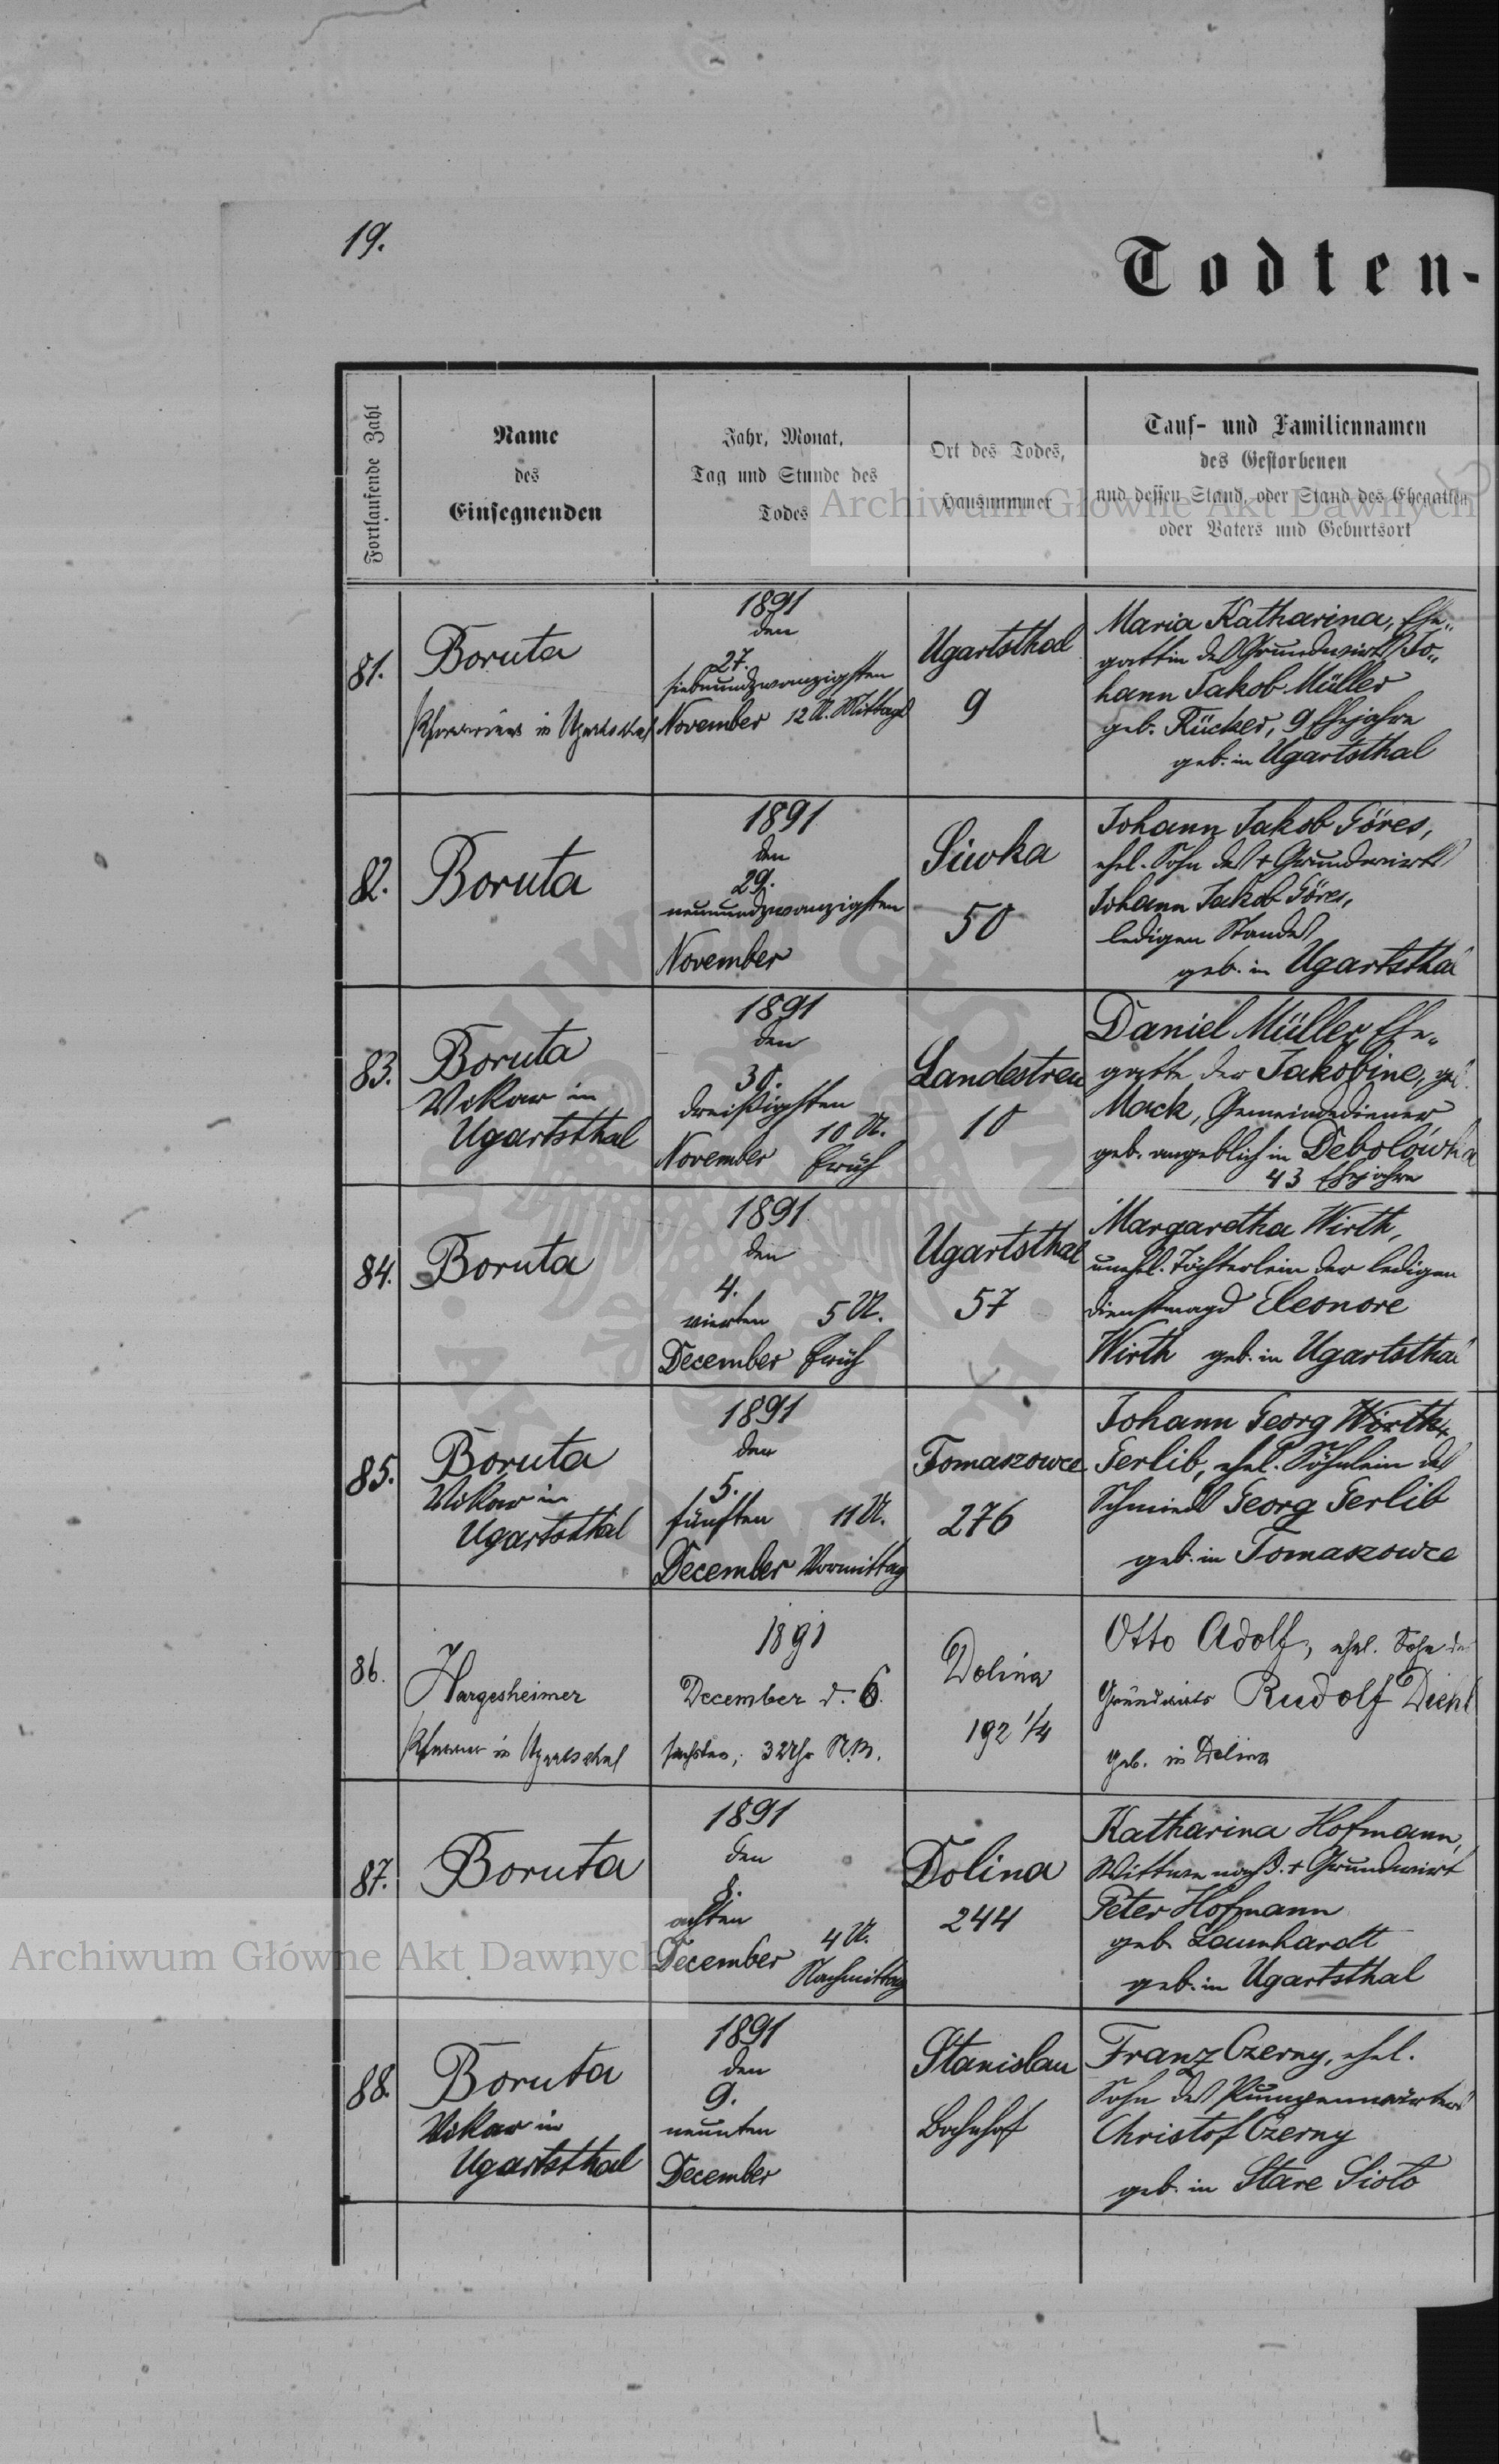 19.
Todten-
Fortlaufende Zahl
Name
des
Einsegnenden
Jahr, Monat,
Tag und Stunde des
Todes
Ort des Todes,
Hausnummer
Tauf- und Familiennamen
des Gestorbenen
und dessen Stand, oder Stand des Ehegatten
oder Vaters und Geburtsort
Archiwum Główne Akt Dawnych
81.
Boruta
in Ugartsthal
1891
den
27.
siebenundzwanzigsten
November 12 U. Mittags
Ugartsthal
9
Maria Katharina, Ehe-
gattin des Grundwirts Jo-
hann Jakob Müller
geb. Rücker, 9 Ehejahre
geb. in Ugartsthal
82.
Boruta
1891
den
29.
neunundzwanzigsten
November
Siwka
50
Johann Jakob Göres,
ehel. Sohn des + Grundwirts
Johann Jakob Göres,
ledigen Standes,
geb. in Ugartsthal
83.
Boruta
Vikar in
Ugartsthal
1891
den
30.
dreißigsten
10 U.
November früh
Landestreu
10
Daniel Müller, Ehe-
gatte der Jakobine, geb.
Mack, Gemeindediener
geb. angeblich in Debolówka
43 Ehejahre
84.
Boruta
1891
den
4.
vierten 5 U.
December früh
Ugartsthal
57
Margaretha Wirth,
unehl. Töchterlein der ledigen
Dienstmagd Eleonore
Wirth geb. in Ugartsthal
85.
Boruta
Vikar in
Ugartsthal
1891
den
5.
fünften 11 U.
December Vormittag
Tomaszowce
276
Johann Georg
Gerlib, ehel. Söhnlein des
Schmied Georg Gerlib
geb. in Tomaszowce
86.
Hargesheimer
Pfarrer in Ugartsthal
1891
December d. 6.
sechsten, 3 Uhr N.M.
Dolina
192 1/4
Otto Adolf, ehel. Sohn des
Grundwirts Rudolf Diehl
geb. in Dolina
87.
Boruta
1891
den
8.
achten
4 U.
December
Nachmittag
Dolina
244
Katharina Hofmann,
Wittwe nach d. + Grundwirt
Peter Hofmann
geb. Launhardt
geb. in Ugartsthal
Archiwum Główne Akt Dawnych
88.
Boruta
Vikar in
Ugartsthal
1891
den
9.
neunten
December
Stanislau
Bahnhof
Franz Czerny, ehel.
Sohn des Pumpenwärters
Christof Czerny
geb. in Stare Sioło